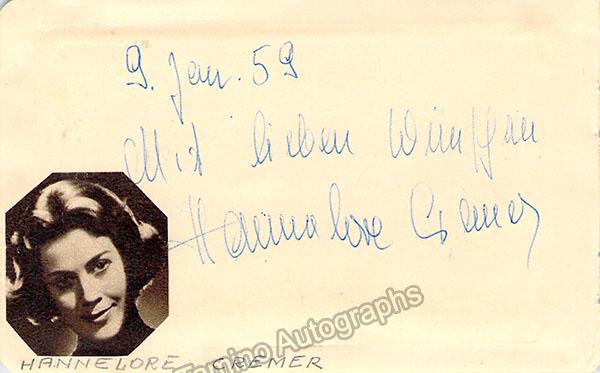 9. Jan. 59
Mit lieben Wünschen
Hannelore Cremer
Tamino Autographs
HANNELORE CREMER